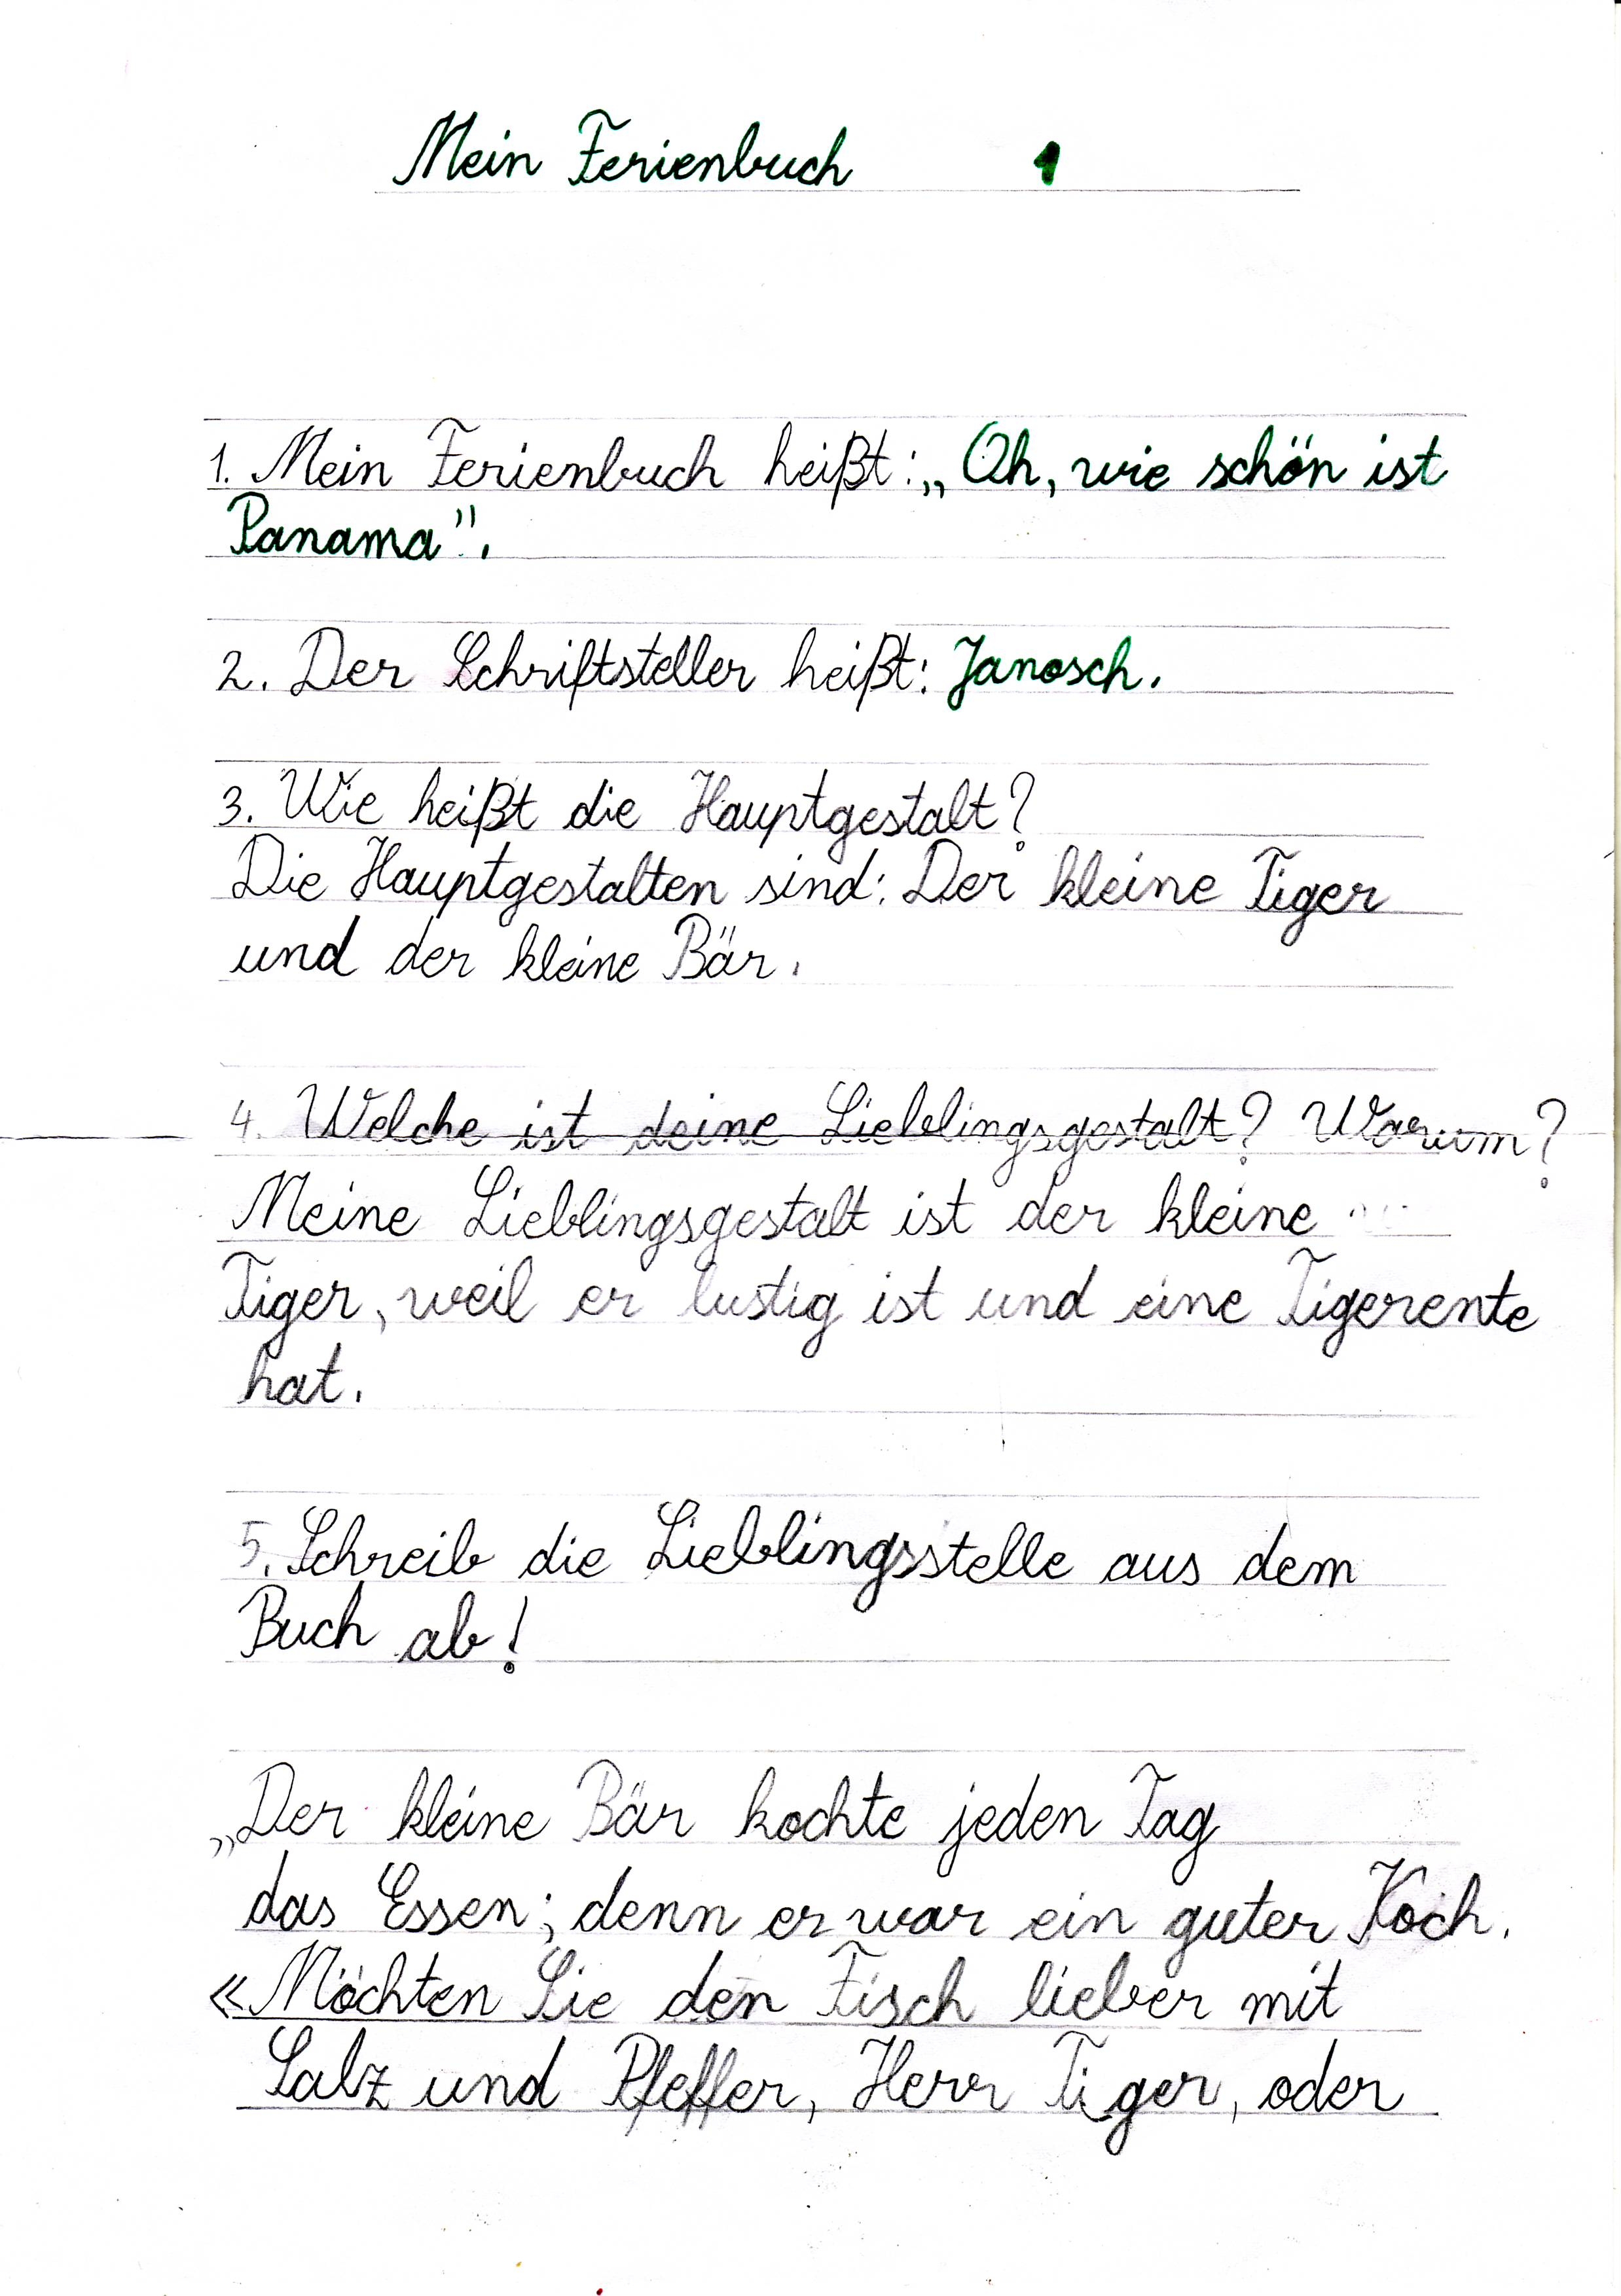 Mein Ferienbuch 1
1. Mein Ferienbuch heißt: „Oh, wie schön ist
Panama".
2. Der Schriftsteller heißt: Janosch.
3. Wie heißt die Hauptgestalt?
Die Hauptgestalten sind: Der kleine Tiger
und der kleine Bär.
4. Welche ist deine Lieblingsgestalt? Warum?
Meine Lieblingsgestalt ist der kleine
Tiger, weil er lustig ist und eine Tigerente
hat.
5. Schreib die Lieblingsstelle aus dem
Buch ab!
„Der kleine Bär kochte jeden Tag
das Essen; denn er war ein guter Koch.
«Möchten Sie den Fisch lieber mit
Salz und Pfeffer, Herr Tiger, oder